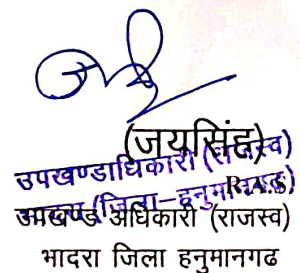 (जयसिंह)
उपखण्डाधिकारी (राजस्व)
R.A.S)
भादरा (जिला-हनुमानगढ़)
उपखण्ड अधिकारी (राजस्व)
भादरा जिला हनुमानगढ